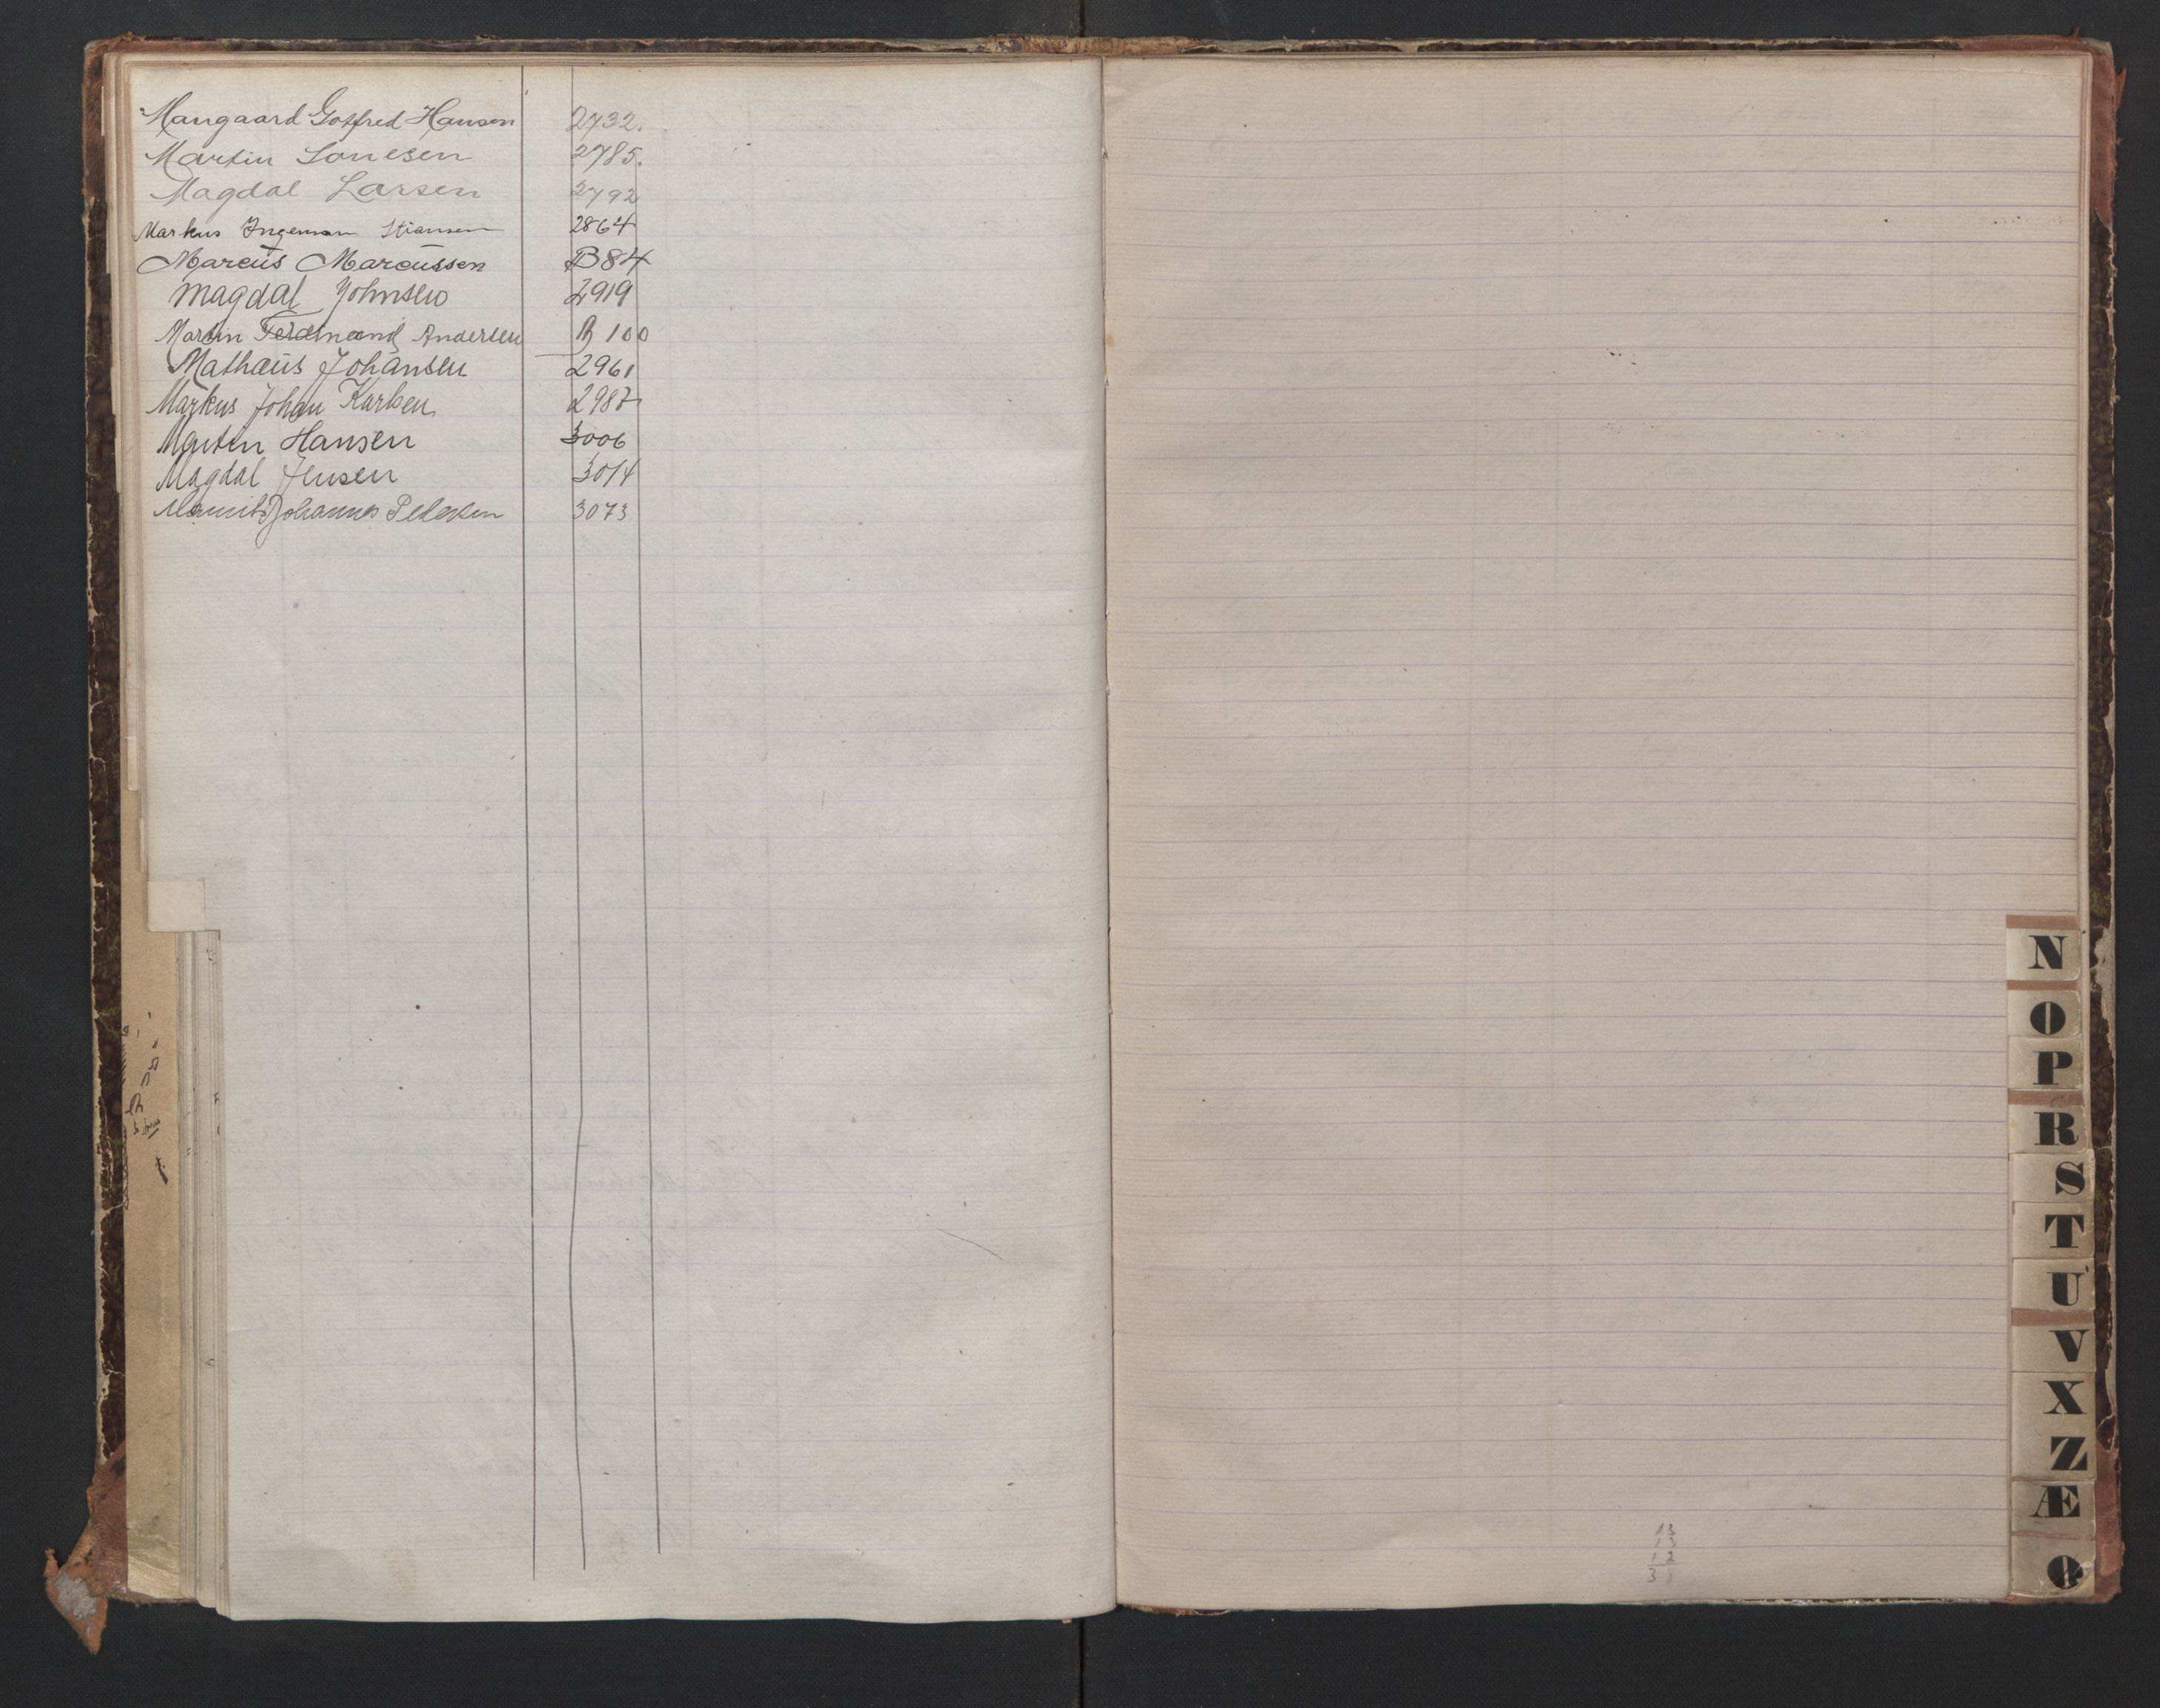 Mangaard Gotfred Hansen 2732.
Martin Lonesen 2785.
Magdal Larsen 2792
Markus Ingeman Stiansen 2864
Marcus Marcussen B84
Magdal Johnsen 2919
Martin Ferdinand Andersen B 100
Mathæus Johansen 2961
Markus Johan Karlsen 2987
Morten Hansen 3006
Magdal Jensen 3014
Johannes Pedersen 3073
N
O
P
R
S
T
U
V
X
Z
Æ
Ø
13
13
12
38